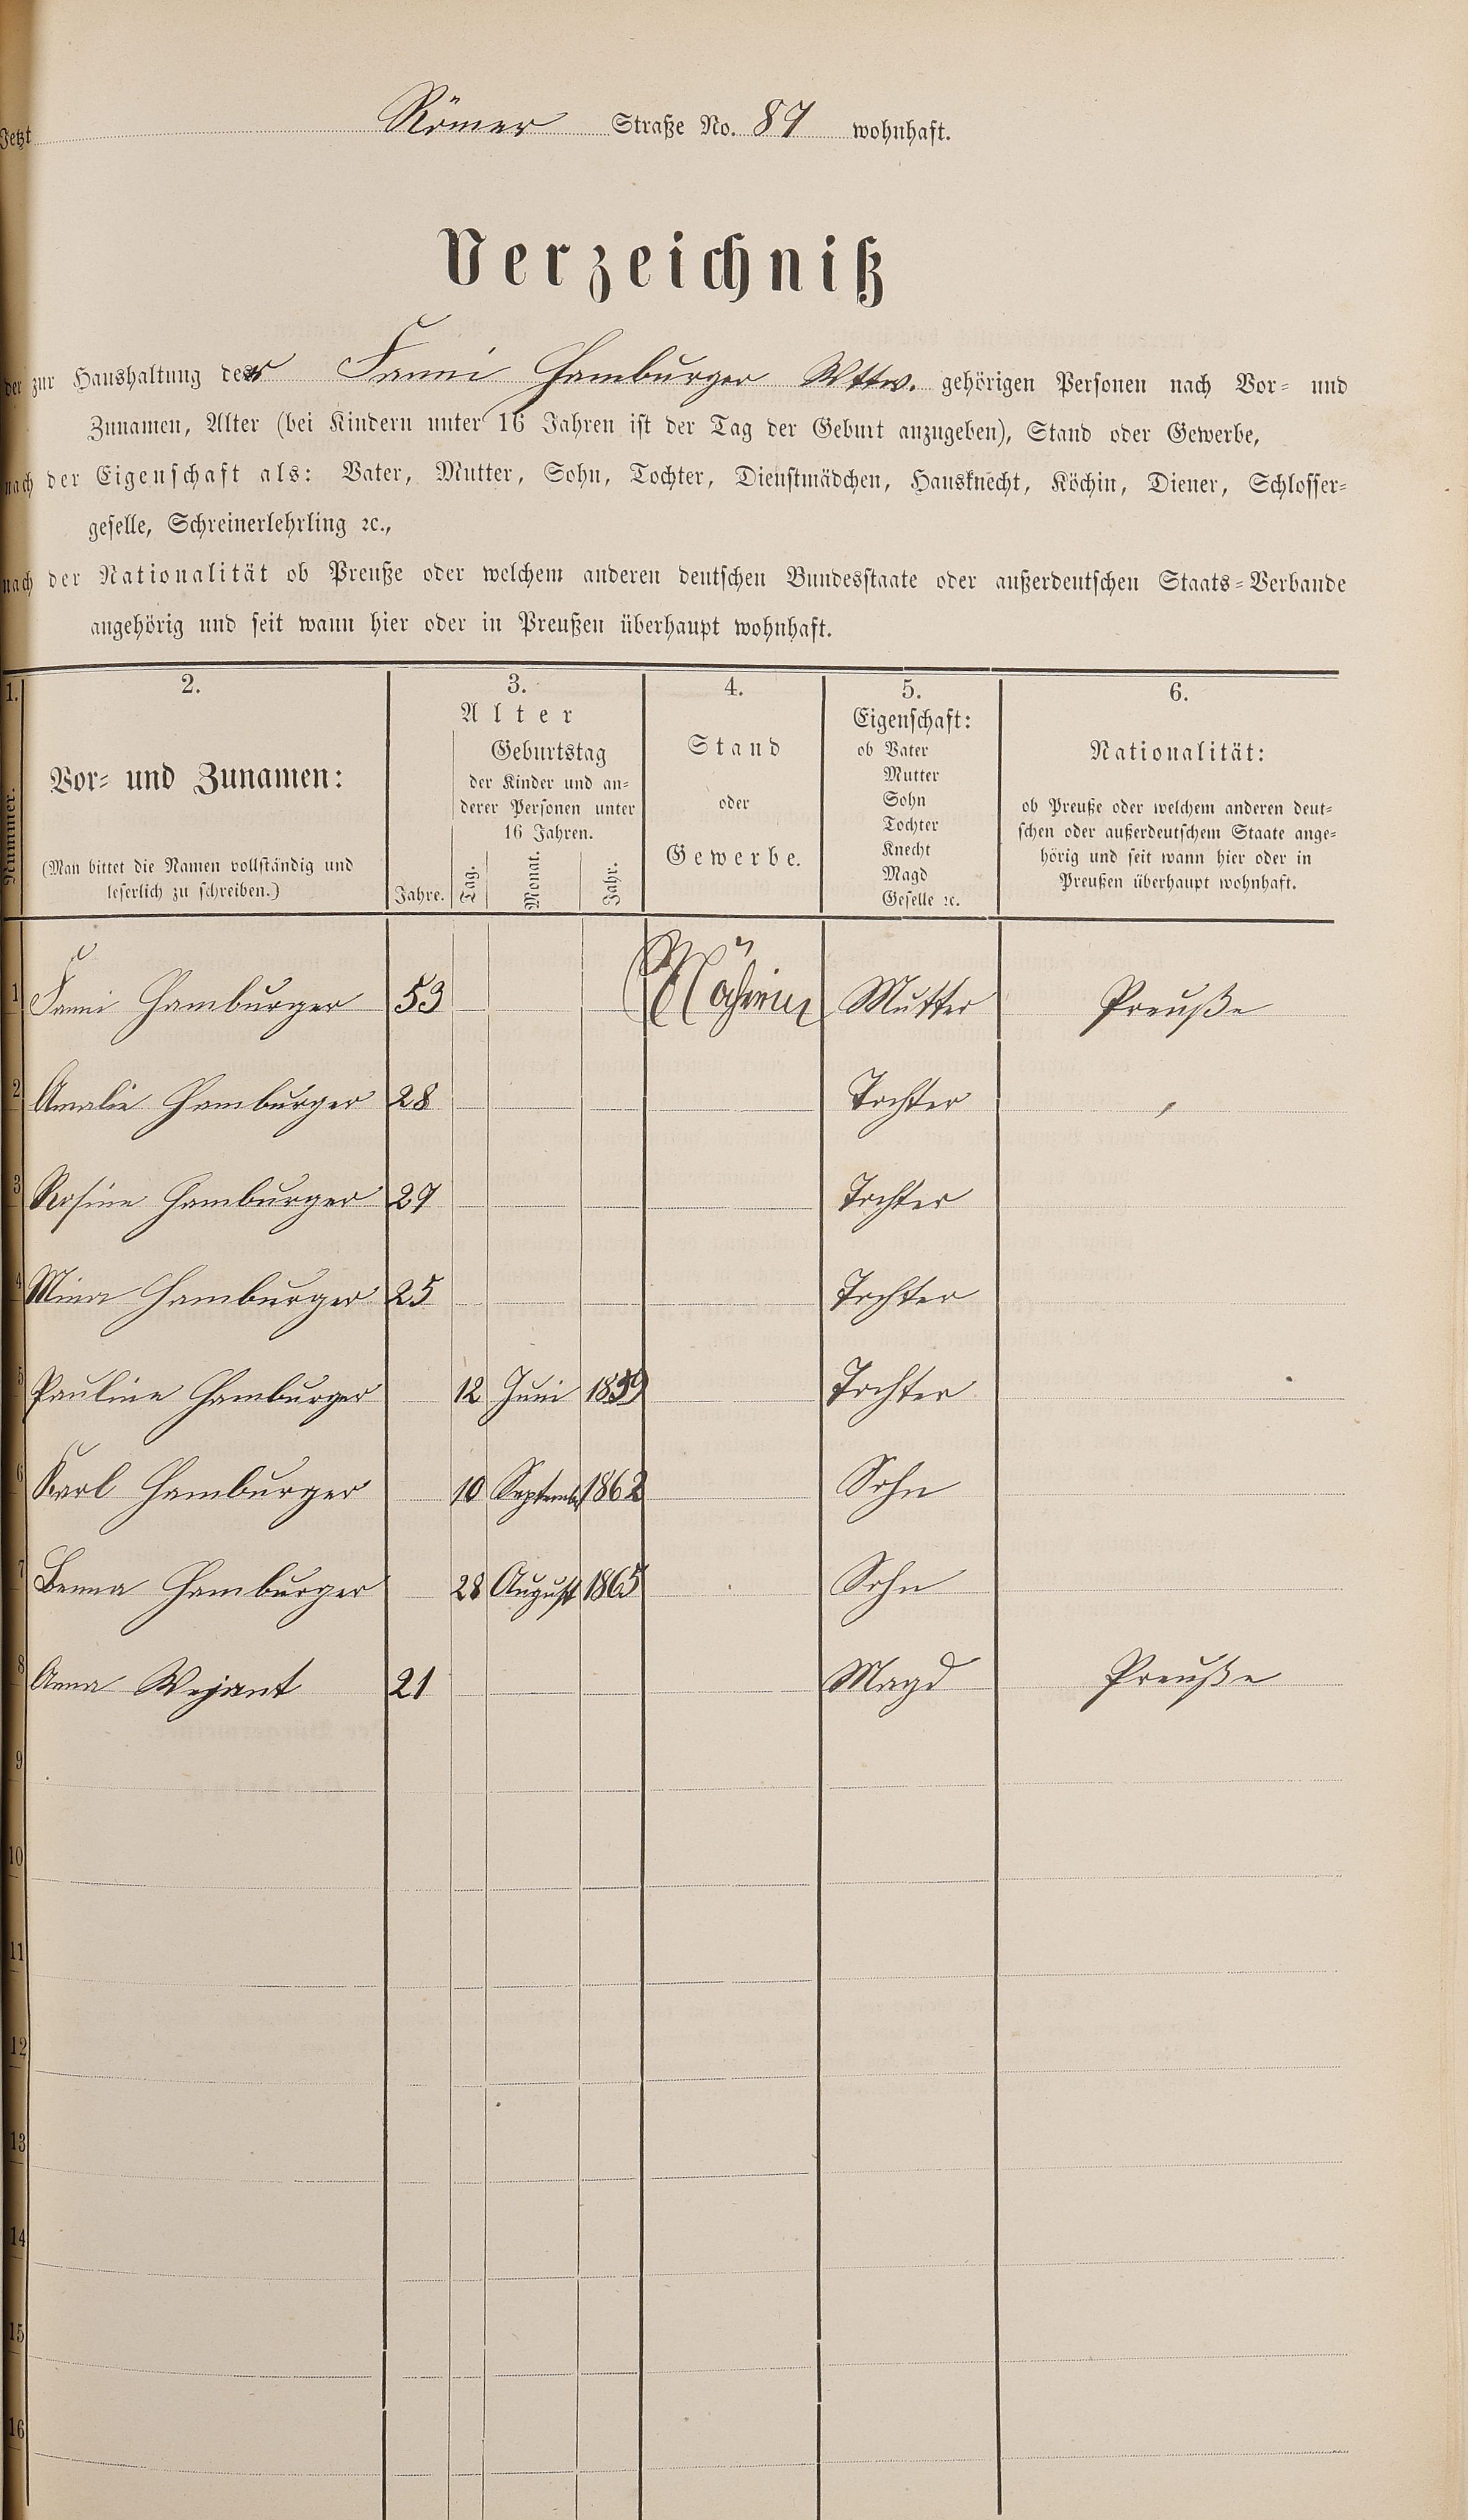 Jetzt Römer Straße No. 87 wohnhaft.
Verzeichniß
der zur Haushaltung der Fanni Hamburger Wttw. gehörigen Personen nach Vor- und
Zunamen, Alter (bei Kindern unter 16 Jahren ist der Tag der Geburt anzugeben), Stand oder Gewerbe,
nach der Eigenschaft als: Vater, Mutter, Sohn, Tochter, Dienstmädchen, Hausknecht, Köchin, Diener, Schlosser-
geselle, Schreinerlehrling ꝛc.,
nach der Nationalität ob Preuße oder welchem anderen deutschen Bundesstaate oder außerdeutschen Staats-Verbande
angehörig und seit wann hier oder in Preußen überhaupt wohnhaft.
1. 2. 3. 4. 5. 6.
Nummer.
Vor- und Zunamen:
(Man bittet die Namen vollständig und
leserlich zu schreiben.)
Alter
Jahre.
Geburtstag
der Kinder und an-
derer Personen unter
16 Jahren.
Tag. Monat. Jahr.
Stand
oder
Gewerbe.
Eigenschaft:
ob Vater
Mutter
Sohn
Tochter
Knecht
Magd
Geselle ꝛc.
Nationalität:
ob Preuße oder welchem anderen deut-
schen oder außerdeutschem Staate ange-
hörig und seit wann hier oder in
Preußen überhaupt wohnhaft.
1 Fanni Hamburger 53 Mutter Preuße
2 Amalie Hamburger 28 Tochter "
3 Rosine Hamburger 27 Tochter
4 Mina Hamburger 25 Tochter
5 Pauline Hamburger 12 Juni 1859 Tochter
6 Karl Hamburger 10 September 1862 Sohn
7 Benna Hamburger 28 August 1865 Sohn
8 Anna Wejant 21 Magd Preuße
9
10
11
12
13
14
15
16